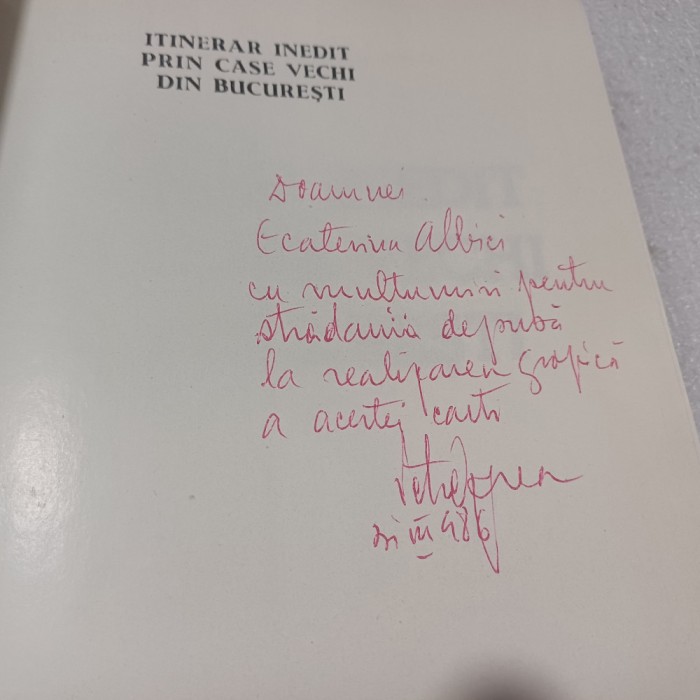 ITINERAR INEDIT
PRIN CASE VECHI
DIN BUCUREȘTI
Doamnei
Ecaterina Albici
cu mulțumiri pentru
strădania depusă
la realizarea grafică
a acestei cărți
III 986